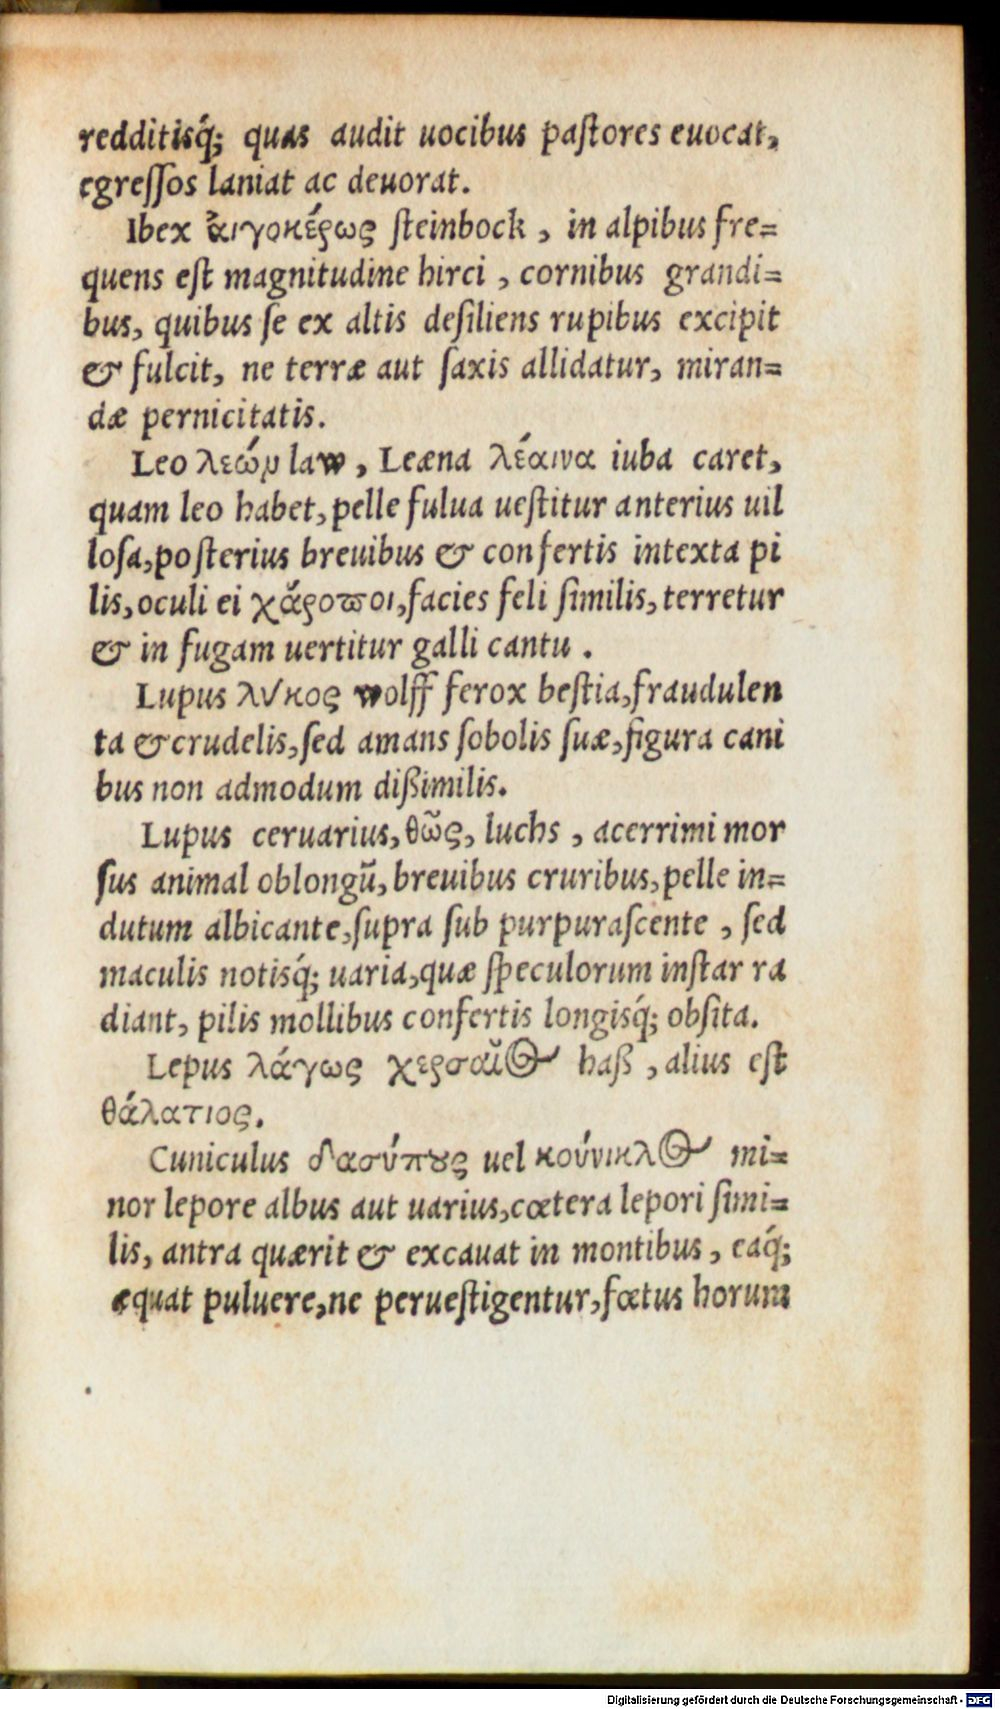 redditisq́; quas audit uocibus paſtores euocat,
egreſſos laniat ac deuorat.
Ibex ἀιγοκέρως ſteinbock, in alpibus fre=
quens eſt magnitudine hirci, cornibus grandi=
bus, quibus ſe ex altis deſiliens rupibus excipit
& fulcit, ne terræ aut ſaxis allidatur, miran=
dæ pernicitatis.
Leo λεώμ law, Leæna λέαινα iuba caret,
quam leo habet, pelle fulua ueſtitur anterius uil
loſa, poſterius breuibus & confertis intexta pi
lis, oculi ei χάροϖοι, facies feli ſimilis, terretur
& in fugam uertitur galli cantu.
Lupus λύκος wolff ferox beſtia, fraudulen
ta & crudelis, ſed amans ſobolis ſuæ, figura cani
bus non admodum dißimilis.
Lupus ceruarius, θῶς, luchs, acerrimi mor
ſus animal oblongũ, breuibus cruribus, pelle in=
dutum albicante, ſupra ſub purpuraſcente, ſed
maculis notisq́; uaria, quæ ſpeculorum inſtar ra
diant, pilis mollibus confertis longisq́; obſita.
Lepus λάγως χερσαῖος haß, alius eſt
θάλατιος.
Cuniculus δασύπȣς uel κούνικλος mi=
nor lepore albus aut uarius, cœtera lepori ſimi=
lis, antra quærit & excauat in montibus, eaq́;
æquat puluere, ne perueſtigentur, fœtus horum
Digitalisierung gefördert durch die Deutsche Forschungsgemeinschaft - DFG